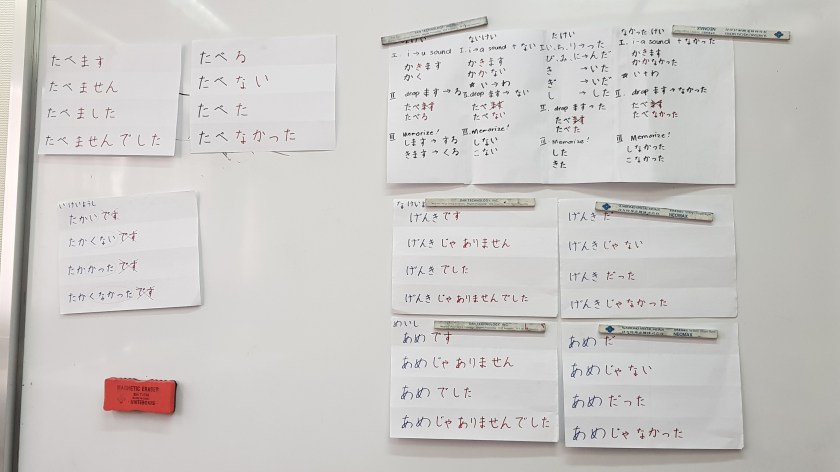 たべます
たべません
たべました
たべませんでした
たべる
たべない
たべた
たべなかった
いけいようし
たかいです
たかくないです
たかかったです
たかくなかったです
I. i→u sound
かきます
かく
II drop ます→る
たべます
たべる
III memorize!
します→する
きます→くる
ないけい
I. i→a sound + ない
かきます
かかない
* い→わ
II. drop ます→ない
たべます
たべない
III. Memorize!
しない
こない
たけい
I. い, ち, り→った
び, み, に→んだ
き→いた
ぎ→いだ
し→した
II. drop ます→た
たべます
たべた
III. Memorize!
した
きた
なかったけい
I. i→a sound + なかった
かきます
かかなかった
* い→わ
II. drop ます→なかった
たべます
たべなかった
III. Memorize!
しなかった
こなかった
なけい
げんきです
げんきじゃありません
げんきでした
げんきじゃありませんでした
げんきだ
げんきじゃない
げんきだった
げんきじゃなかった
めいし
あめです
あめじゃありません
あめでした
あめじゃありませんでした
あめだ
あめじゃない
あめだった
あめじゃなかった
MAGNETIC ERASER